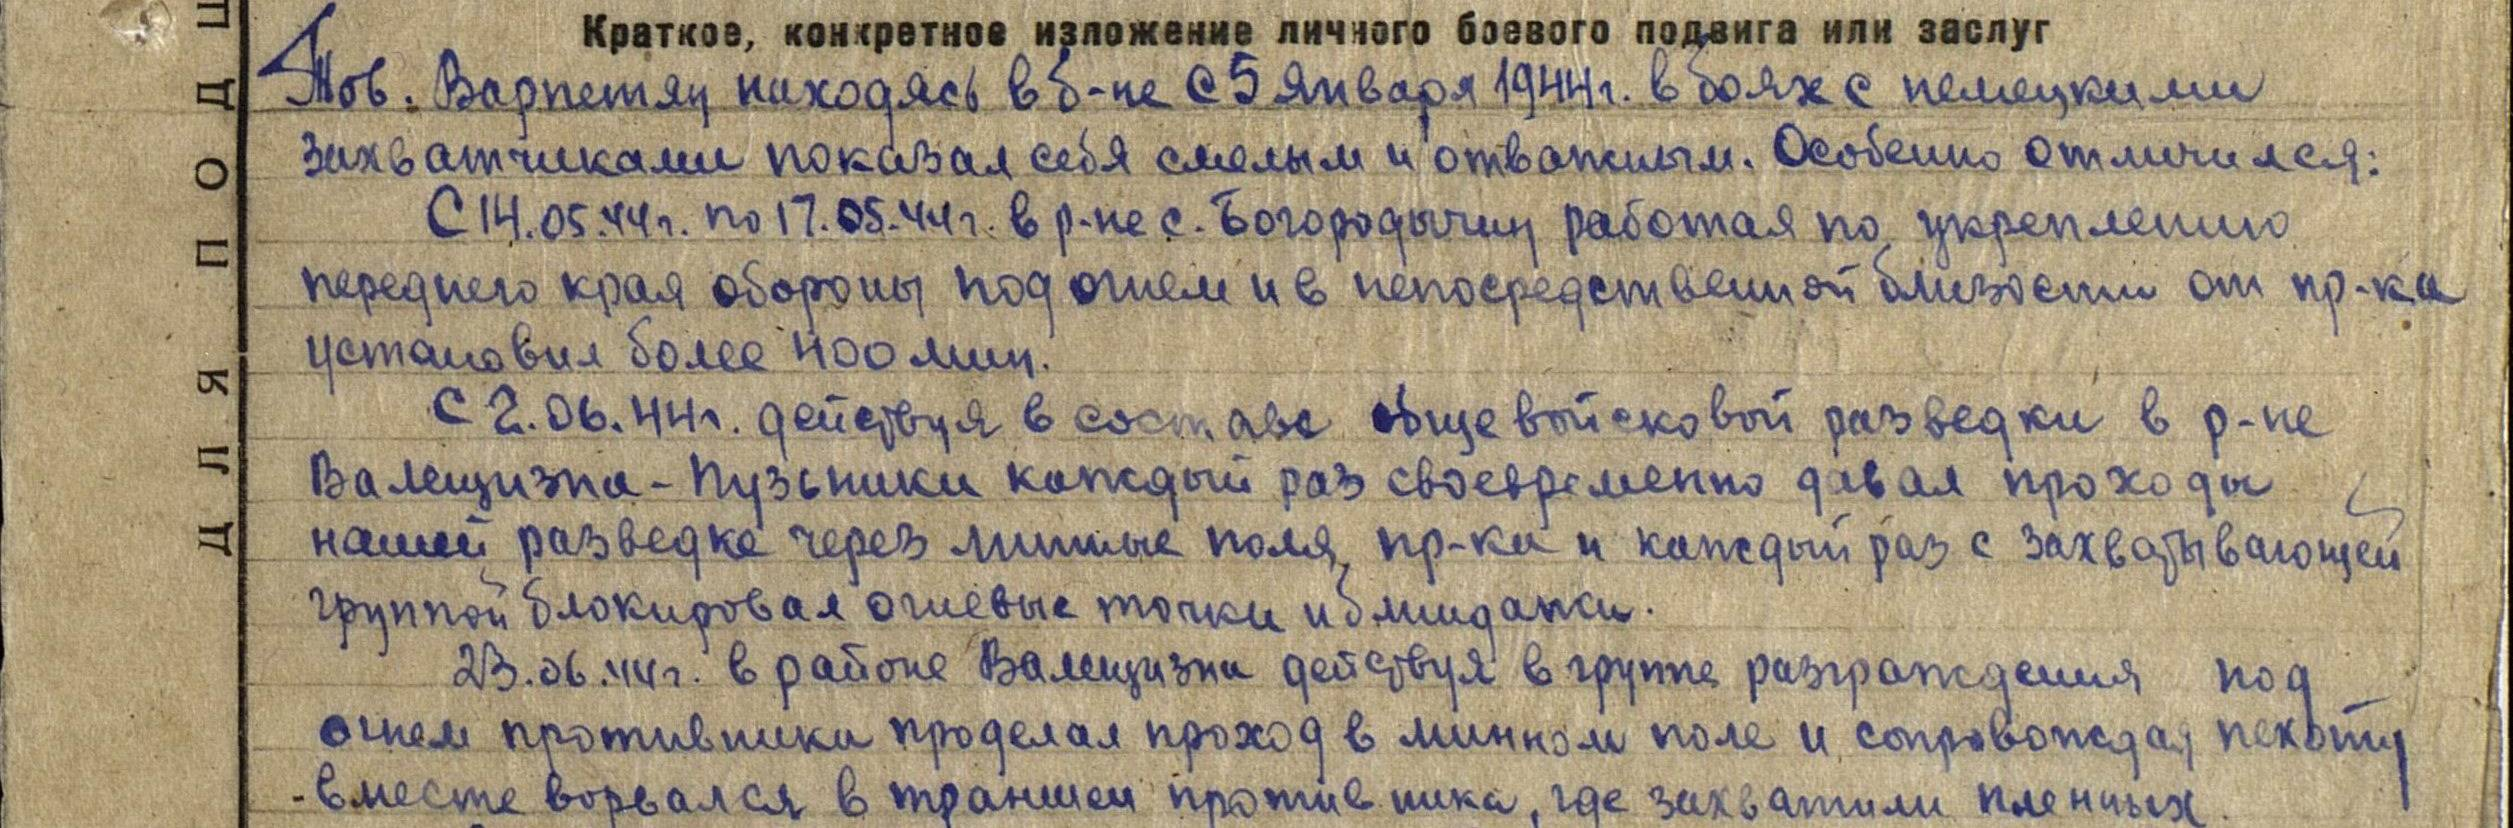 Краткое, конкретное изложение личного боевого подвига или заслуг
Тов. Варпетян находясь в б-не с 5 января 1944г. в боях с немецкими
захватчиками показал себя смелым и отважным. Особенно отличился:
С 14.05.44г. по 17.05.44г. в р-не с. Богородычин работая по укреплению
переднего края обороны под огнем и в непосредственной близости от пр-ка
установил более 400 мин.
С 2.06.44г. действуя в составе общевойсковой разведки в р-не
Валещизна - Пузьники каждый раз своевременно давал проходы
нашей разведке через минные поля пр-ка и каждый раз с захватывающей
группой блокировал огневые точки и блиндажи.
23.06.44г. в районе Валещизна действуя в группе разграждения под
огнем противника проделал проход в минном поле и сопровождая пехоту
вместе ворвался в траншеи противника, где захватили пленных.
ДЛЯ ПОДШ